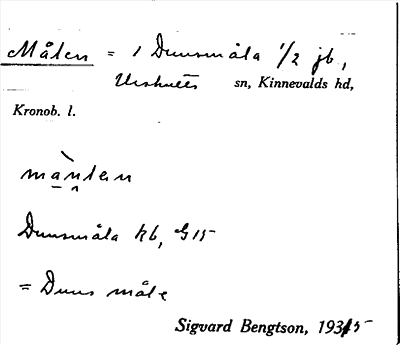 Målen = 1 Dunsmåla 1/2 jb,
Urshults sn, Kinnevalds hd,
Kronob. l.
Dunsmåla kb, G 15
= Duns måle
Sigvard Bengtson, 1935